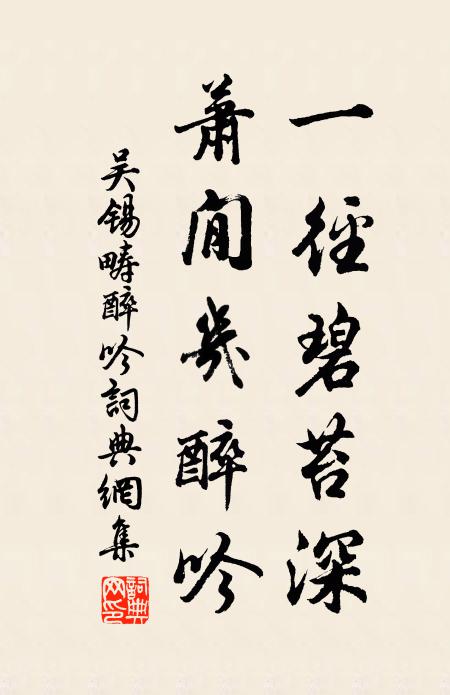 一徑碧苔深
蕭閒幾醉吟
吳錫疇醉吟詞典網集
詞典網印